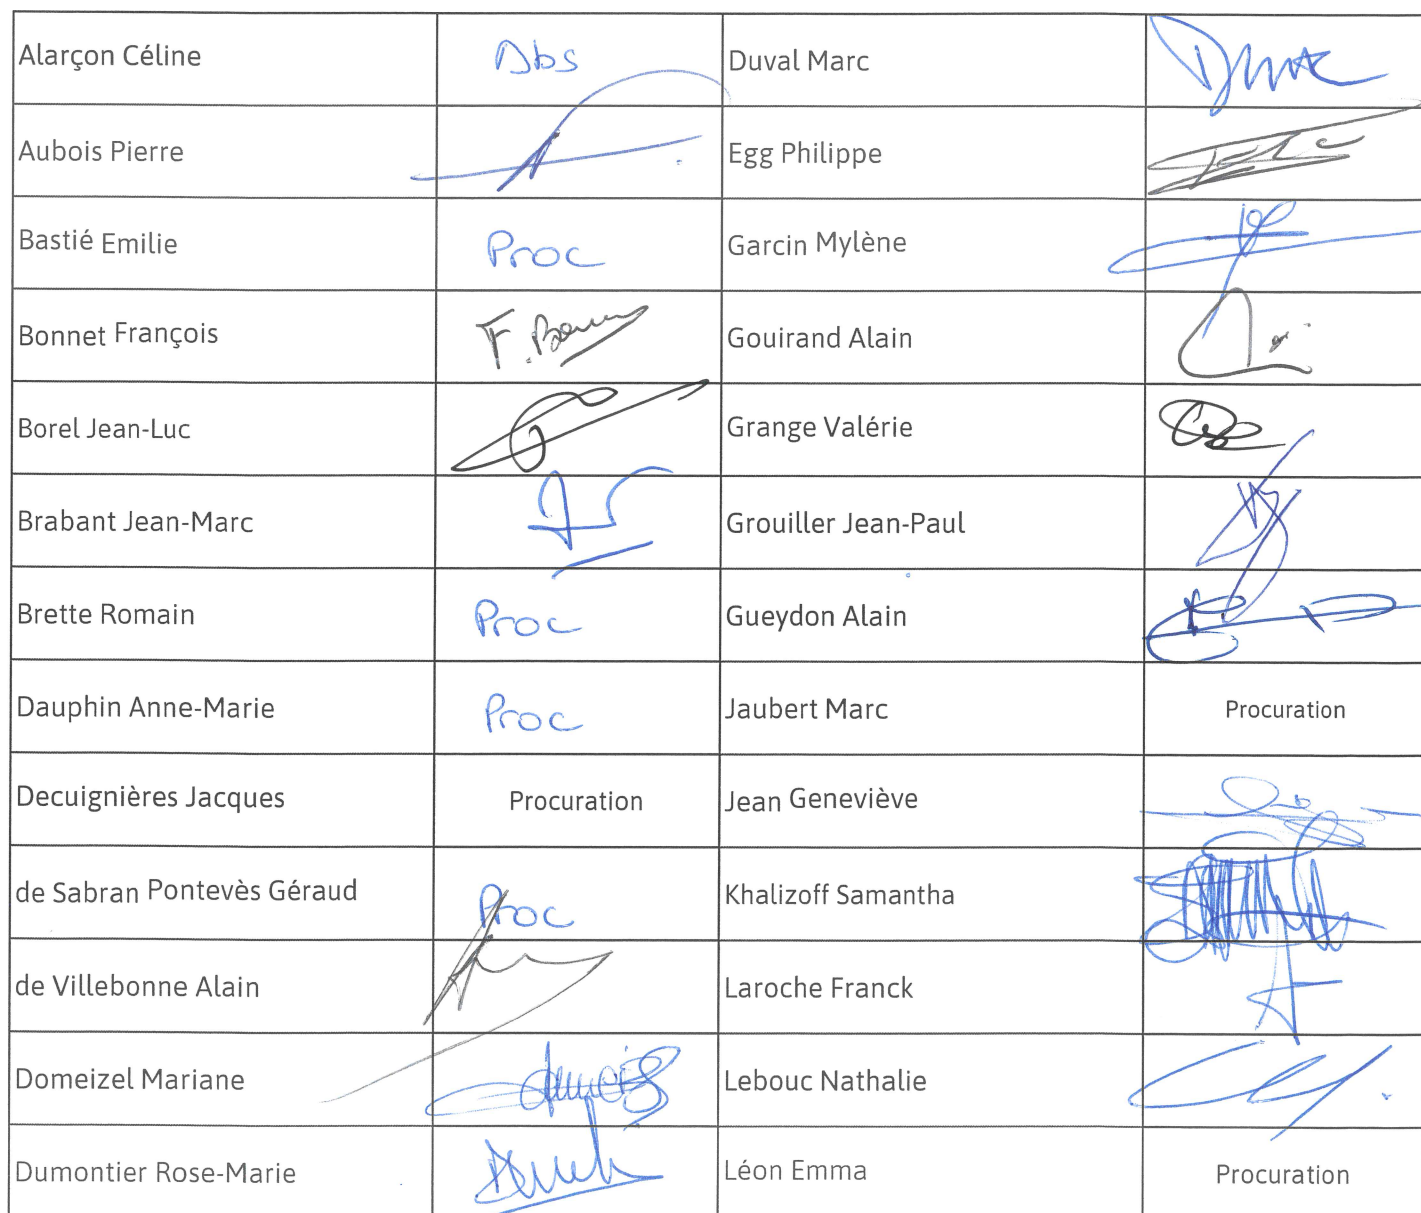 Alarçon Céline Abs Duval Marc
Aubois Pierre Egg Philippe
Bastié Emilie Proc Garcin Mylène
Bonnet François Gouirand Alain
Borel Jean-Luc Grange Valérie
Brabant Jean-Marc Grouiller Jean-Paul
Brette Romain Proc Gueydon Alain
Dauphin Anne-Marie Proc Jaubert Marc Procuration
Decuignières Jacques Procuration Jean Geneviève
de Sabran Pontevès Géraud Proc Khalizoff Samantha
de Villebonne Alain Laroche Franck
Domeizel Mariane Lebouc Nathalie
Dumontier Rose-Marie Léon Emma Procuration